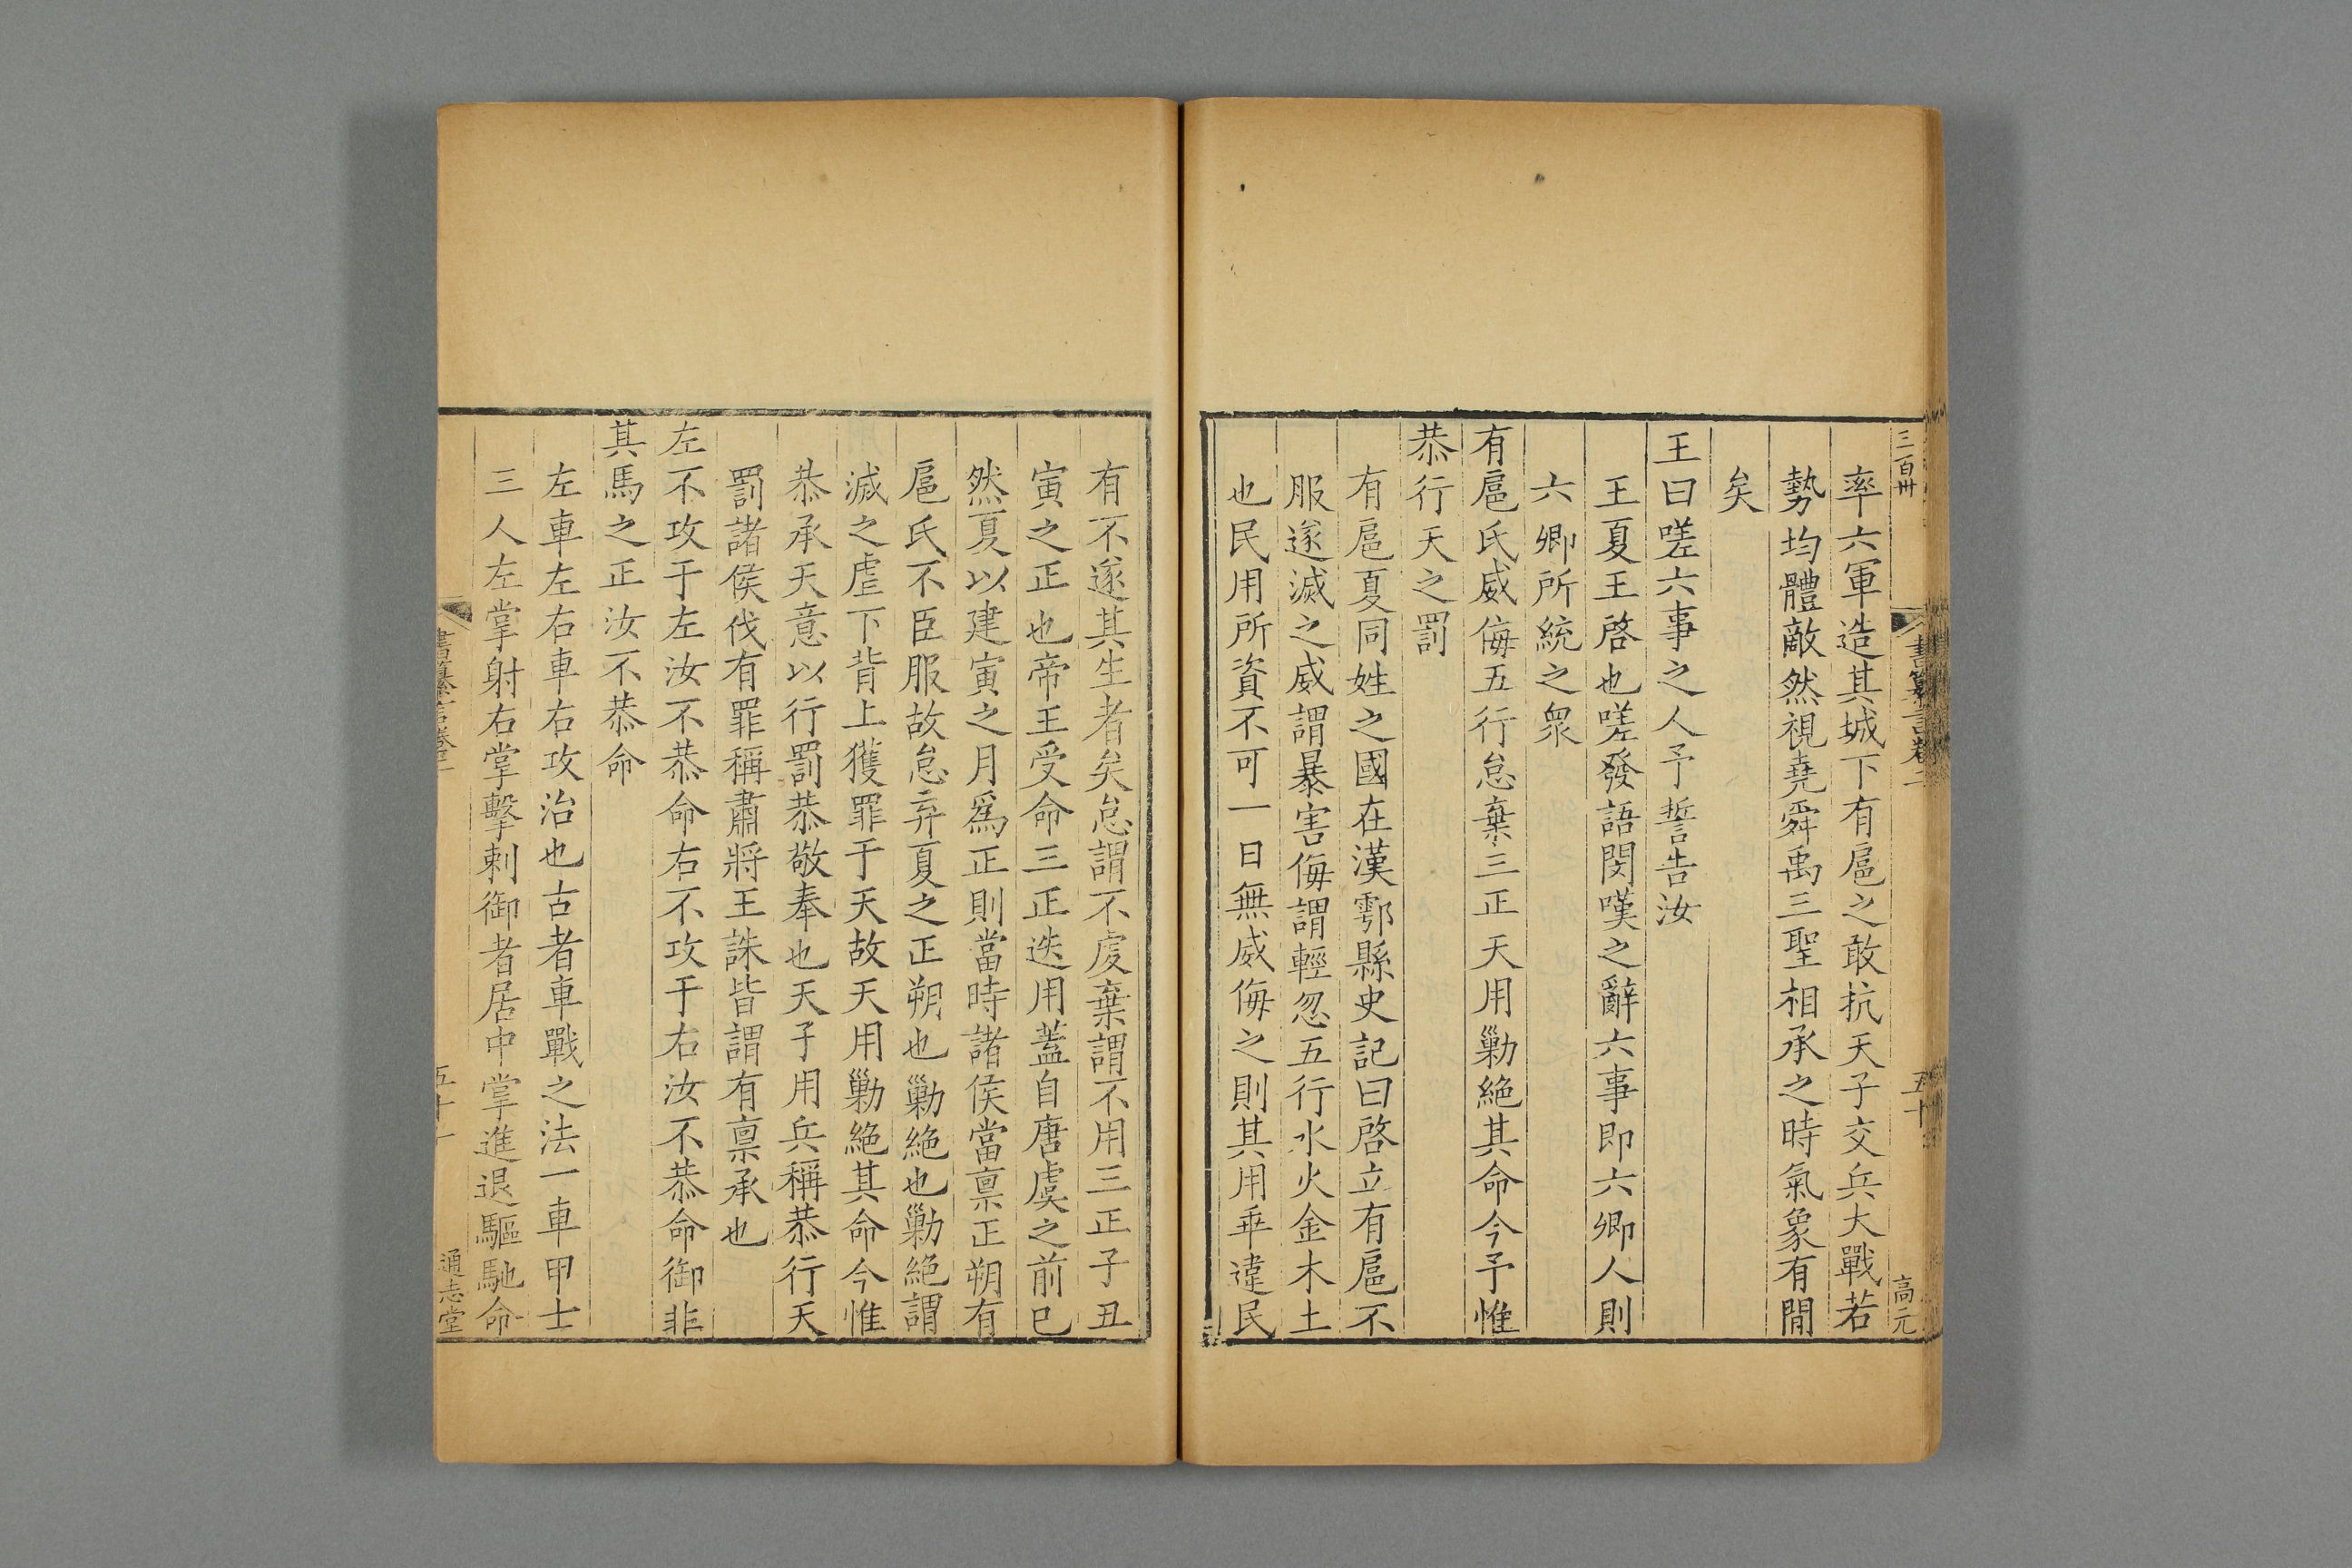 三百卅
書纂言卷二
五十
高元
率六軍造其城下有扈之敢抗天子交兵大戰若
勢均體敵然視堯舜禹三聖相承之時氣象有閒
矣
王曰嗟六事之人予誓告汝
王夏王啓也嗟發語閔嘆之辭六事即六卿人則
六卿所統之衆
有扈氏威侮五行怠棄三正天用勦絶其命今予惟
恭行天之罰
有扈夏同姓之國在漢鄠縣史記曰啓立有扈不
服遂滅之威謂暴害侮謂輕忽五行水火金木土
也民用所資不可一日無威侮之則其用乖違民
有不遂其生者矣怠謂不虔棄謂不用三正子丑
寅之正也帝王受命三正迭用蓋自唐虞之前已
然夏以建寅之月爲正則當時諸侯當禀正朔有
扈氏不臣服故怠弃夏之正朔也勦絶也勦絶謂
滅之虐下背上獲罪于天故天用勦絶其命今惟
恭承天意以行罰恭敬奉也天子用兵稱恭行天
罰諸侯伐有罪稱肅將王誅皆謂有禀承也
左不攻于左汝不恭命右不攻于右汝不恭命御非
其馬之正汝不恭命
左車左右車右攻治也古者車戰之法一車甲士
三人左掌射右掌擊刺御者居中掌進退驅馳命
書纂言卷二
五十一
通志堂